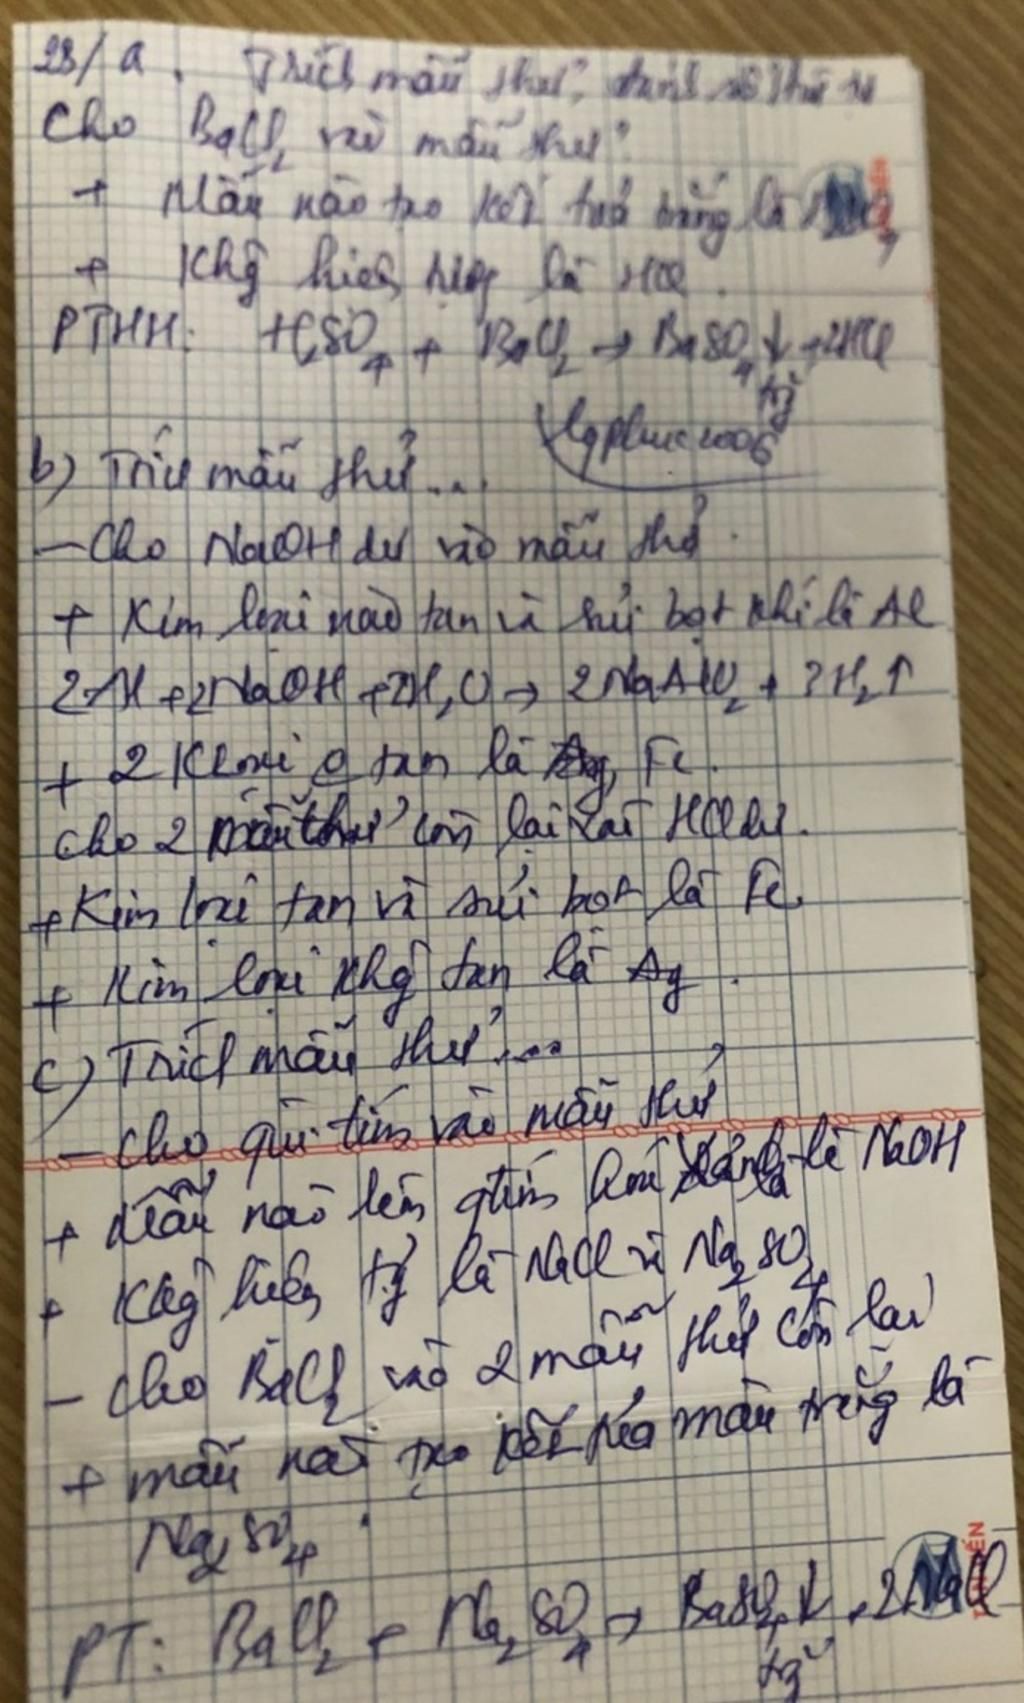 23/ a. Trích mẫu thử, đánh số thứ tự
Cho BaCl₂ vào mẫu thử
+ Mẫu nào tạo kết tủa trắng là
+ Khg hiện tượng là HCl.
PTHH: H₂SO₄ + BaCl₂ → BaSO₄↓ + 2HCl
trg
lqphuc2006
b) Trích mẫu thử...
- Cho NaOH dư vào mẫu thử.
+ Kim loại nào tan và sủi bọt khí là Al
2Al + 2NaOH + 2H₂O → 2NaAlO₂ + 3H₂↑
+ 2 Kloại o tan là Ag, Fe.
Cho 2 mẫu thử còn lại vào HCl dư.
+ Kim loại tan và sủi bọt là Fe.
+ Kim loại khg tan là Ag.
c) Trích mẫu thử...
- Cho quì tím vào mẫu thử
+ Mẫu nào làm qtím hoá xanh là NaOH
+ Khg hiện tg là NaCl và Na₂SO₄
- Cho BaCl₂ vào 2 mẫu thử còn lại
+ mẫu nào tạo kết tủa màu trắng là
Na₂SO₄.
PT: BaCl₂ + Na₂SO₄ → BaSO₄↓ + 2NaCl
trg